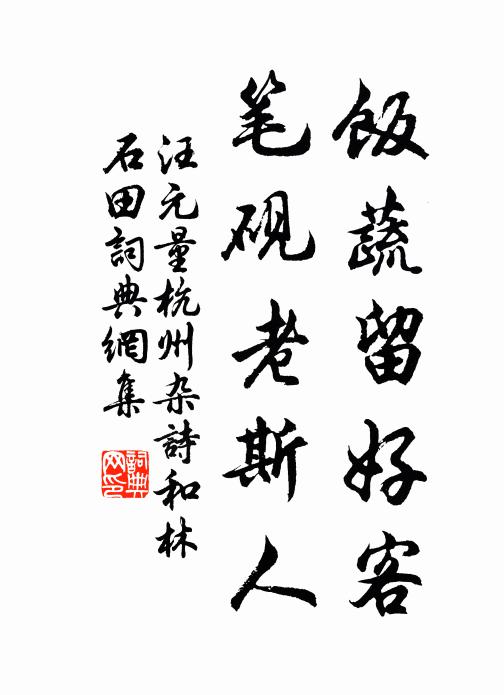 飯蔬留好客
笔砚老斯人
汪元量杭州杂詩和林
石田詞典網集
詞典网印